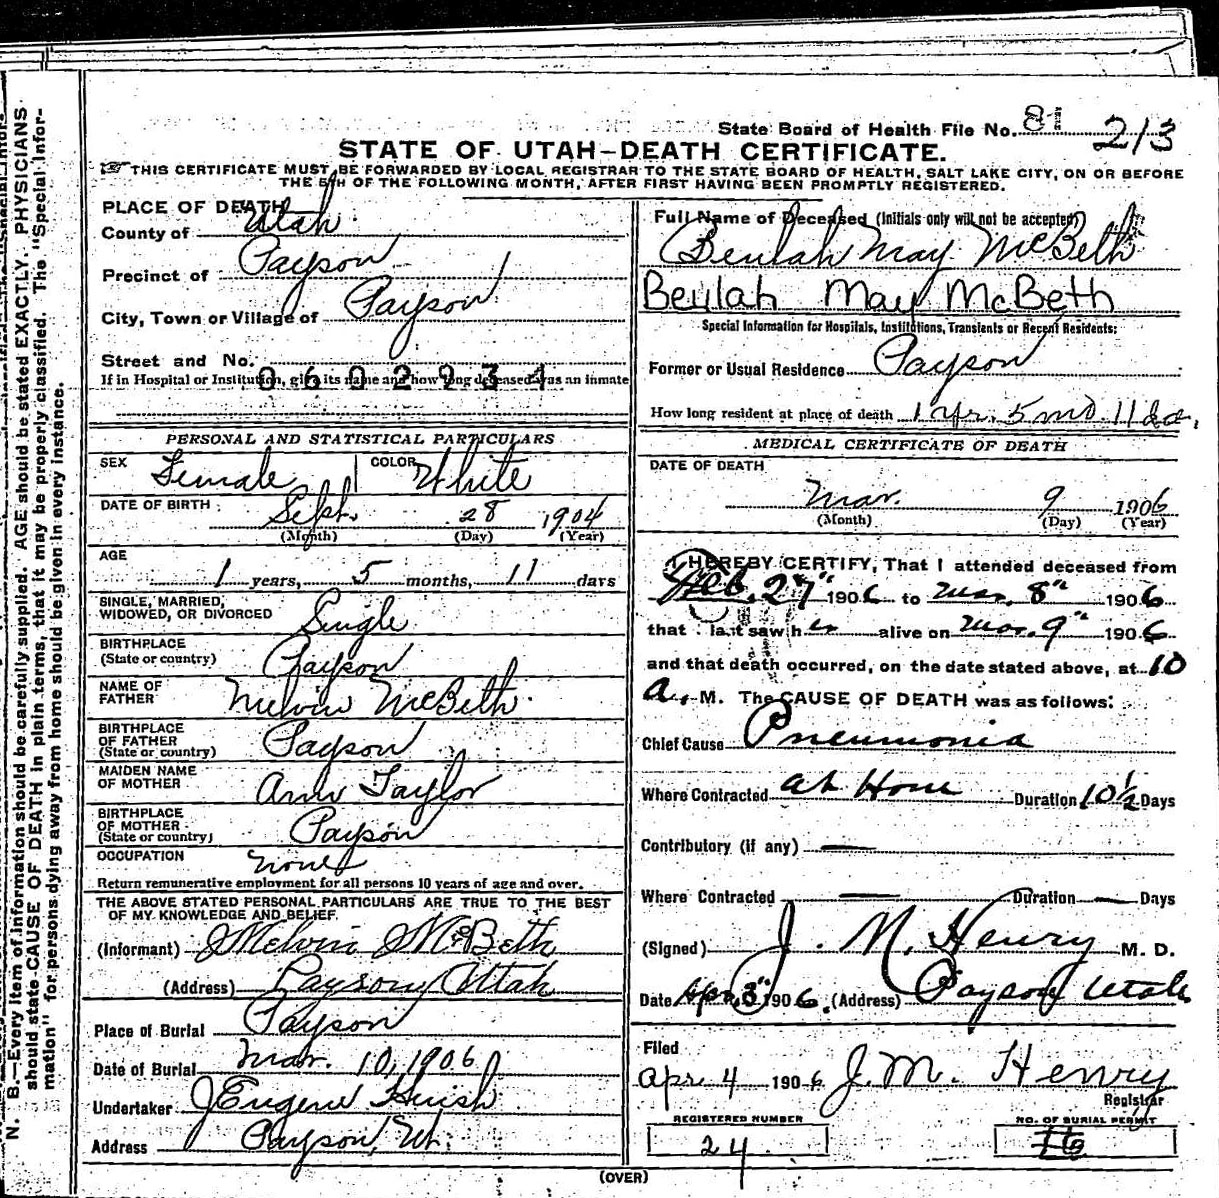 State Board of Health File No. 81 213
STATE OF UTAH—DEATH CERTIFICATE.
THIS CERTIFICATE MUST BE FORWARDED BY LOCAL REGISTRAR TO THE STATE BOARD OF HEALTH, SALT LAKE CITY, ON OR BEFORE
THE 5TH OF THE FOLLOWING MONTH, AFTER FIRST HAVING BEEN PROMPTLY REGISTERED.
PLACE OF DEATH
County of Utah
Precinct of Payson
City, Town or Village of Payson
Street and No.
0602934
If in Hospital or Institution, give its name and how long deceased was an inmate
PERSONAL AND STATISTICAL PARTICULARS
SEX Female COLOR White
DATE OF BIRTH Sept. 28 1904
(Month) (Day) (Year)
AGE
1 years, 5 months, 11 days
SINGLE, MARRIED,
WIDOWED, OR DIVORCED Single
BIRTHPLACE
(State or country) Payson
NAME OF
FATHER Melvin McBeth
BIRTHPLACE
OF FATHER
(State or country) Payson
MAIDEN NAME
OF MOTHER Ann Taylor
BIRTHPLACE
OF MOTHER
(State or country) Payson
OCCUPATION none
Return remunerative employment for all persons 10 years of age and over.
THE ABOVE STATED PERSONAL PARTICULARS ARE TRUE TO THE BEST
OF MY KNOWLEDGE AND BELIEF.
(Informant) J Melvin McBeth
(Address) Payson, Utah
Place of Burial Payson
Date of Burial Mar. 10, 1906
Undertaker J Eugene Huish
Address Payson, Ut.
Full Name of Deceased (Initials only will not be accepted)
Beulah May McBeth
Beulah May McBeth
Special Information for Hospitals, Institutions, Transients or Recent Residents:
Former or Usual Residence Payson
How long resident at place of death 1 yr. 5 mo. 11 da.
MEDICAL CERTIFICATE OF DEATH
DATE OF DEATH
Mar. 9 1906
(Month) (Day) (Year)
I HEREBY CERTIFY, That I attended deceased from
Feb. 27" 1906 to Mar. 8" 1906
that I last saw her alive on Mar. 9" 1906
and that death occurred, on the date stated above, at 10
a. M. The CAUSE OF DEATH was as follows:
Chief Cause Pneumonia
Where Contracted at Home Duration 10½ Days
Contributory (if any) —
Where Contracted — Duration — Days
(Signed) J. M. Henry M. D.
Date Apr. 3" 1906. (Address) Payson Utah
Filed
Apr. 4 1906 J. M. Henry
Registrar
REGISTERED NUMBER
24
NO. OF BURIAL PERMIT
16
(OVER)
N. B.—Every item of information should be carefully supplied. AGE should be stated EXACTLY. PHYSICIANS
should state CAUSE OF DEATH in plain terms, that it may be properly classified. The "Special Infor-
mation" for persons dying away from home should be given in every instance.